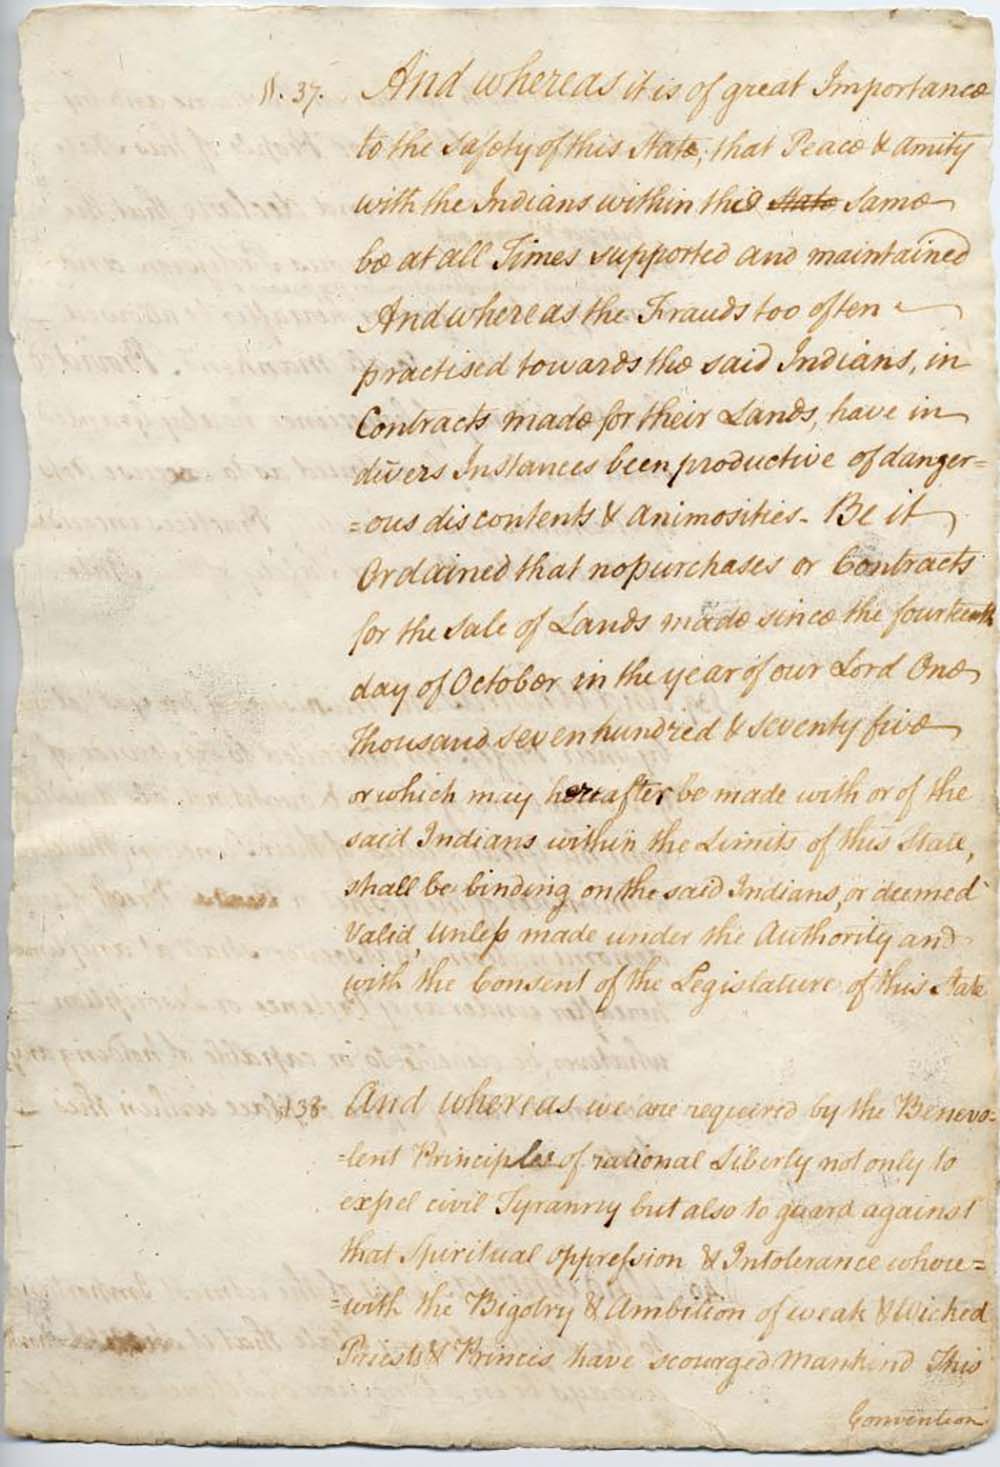 §. 37. And whereas it is of great Importance
to the safety of this State, that Peace & Amity
with the Indians within the state same
be at all Times supported and maintained
And whereas the Frauds too often
practised towards the said Indians, in
Contracts made for their Lands, have in
divers Instances been productive of danger=
=ous discontents & Animosities. Be it
Ordained that no purchases or Contracts
for the Sale of Lands made since the fourteenth
day of October in the year of our Lord One
Thousand seven hundred & seventy five
or which may hereafter be made with or of the
said Indians within the Limits of this State,
shall be binding on the said Indians, or deemed
Valid, Unless made under the Authority and
with the Consent of the Legislature of this State
§38. And whereas we are required by the Benevo=
=lent Principles of rational Liberty not only to
expel civil Tyranny but also to guard against
that Spiritual oppression & Intolerance where=
=with the Bigotry & Ambition of weak & Wicked
Priests & Princes have scourged Mankind This
Convention